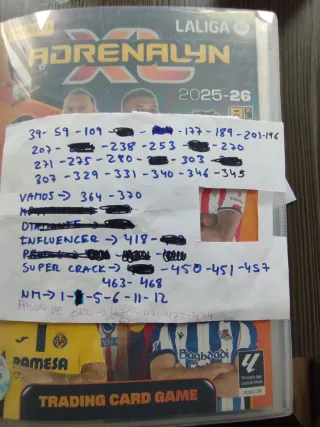 LALIGA
ADRENALYN
XL
2025-26
39- 59 -109 - - -177 -189 -201-196
207- -238 -253 - -270
271 -275 -280 - -303
307 -329 -331 -340 -346 -345
VAMOS → 364 -370
INFLUENCER → 418 -
SUPER CRACK → -450 -451 -457
463- 468
NM → 1- -5 -6 -11 -12
PAMESA
TRADING CARD GAME